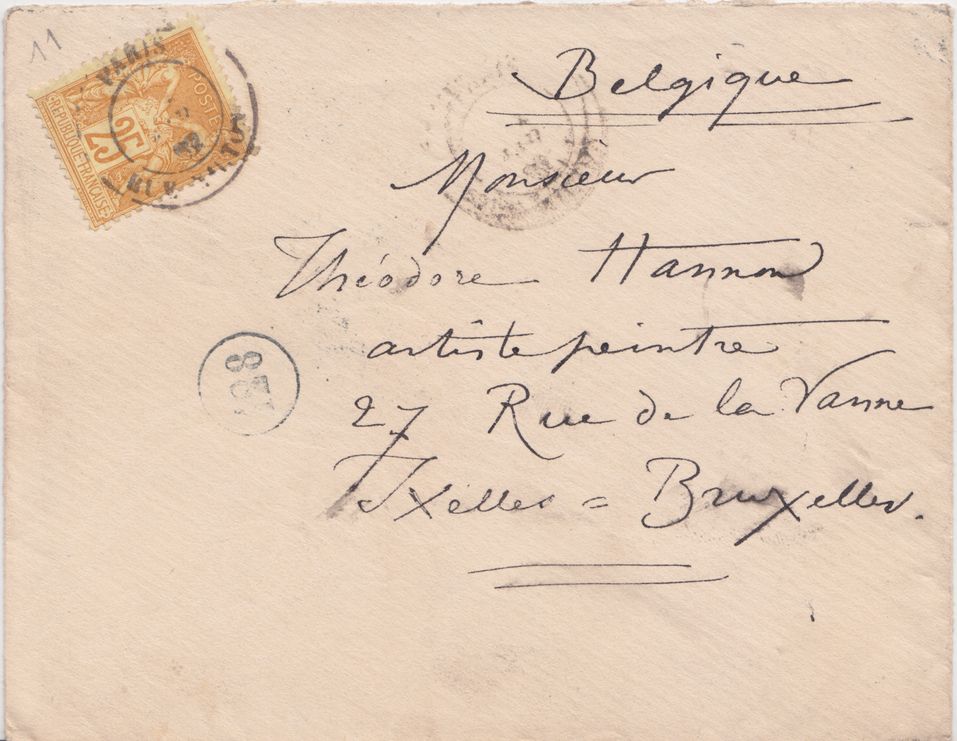 11
PARIS
POSTE
25
REPUBLIQUE FRANÇAISE
82
Belgique
Monsieur
Théodore Hannon
artiste peintre
27 Rue de la Vanne
Ixelles = Bruxelles.